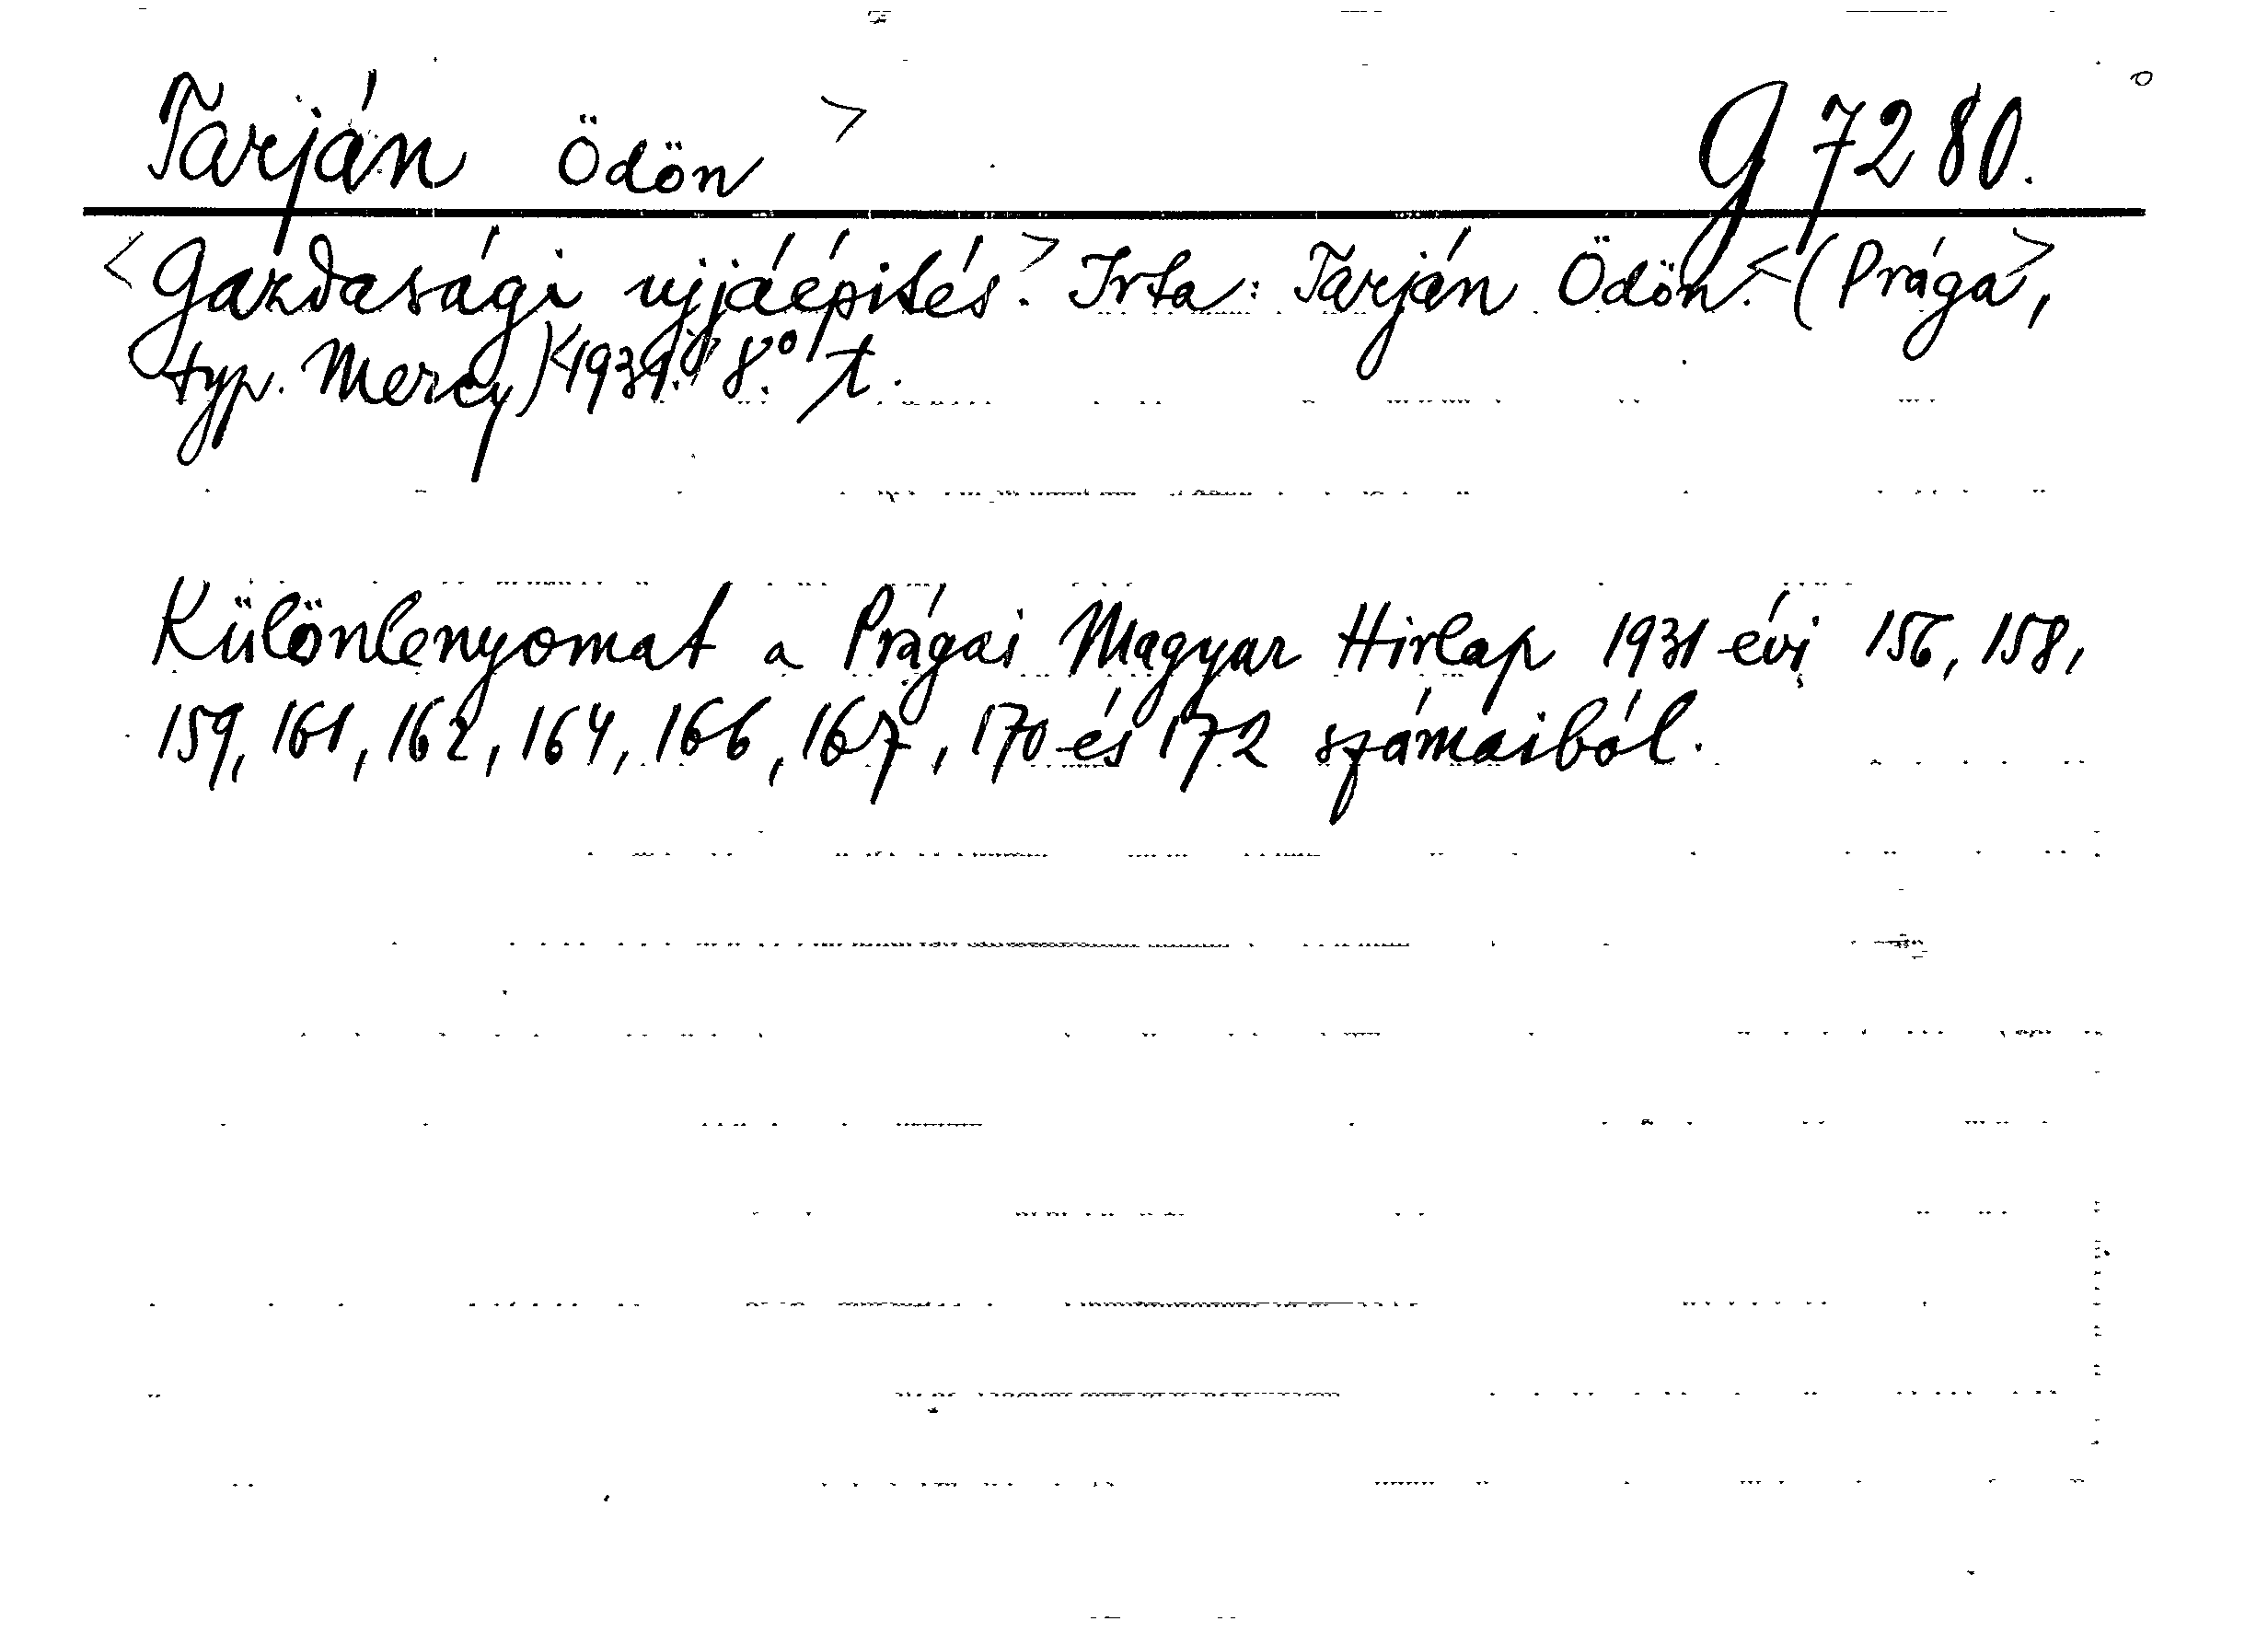 Tarján Ödön > G 7280.
<Gazdasági ujjáépités.> Irta: Tarján Ödön. <(Prága>,
typ. Mercy) <1931.> 8.° t.
Különlenyomat a Prágai Magyar Hirlap 1931 évi 156, 158,
159, 161, 162, 164, 166, 167, 170 és 172 számaiból.